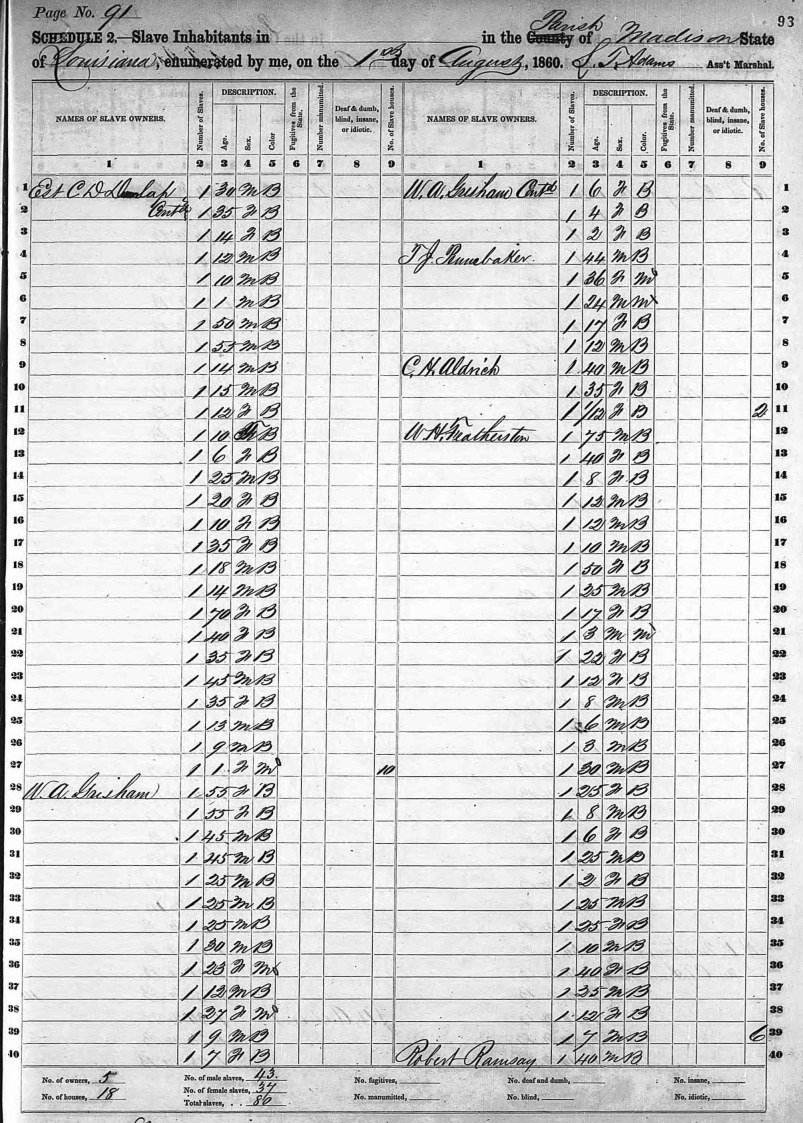 Page No. 91
93
SCHEDULE 2.—Slave Inhabitants in in the County Parish of Madison State
of Louisiana, enumerated by me, on the 1st day of August, 1860. Adams Ass't Marshal.
NAMES OF SLAVE OWNERS. Number of Slaves. DESCRIPTION. Age. Sex. Color Fugitives from the State. Number manumitted. Deaf & dumb, blind, insane, or idiotic. No. of Slave houses. NAMES OF SLAVE OWNERS. Number of Slaves. DESCRIPTION. Age. Sex. Color. Fugitives from the State. Number manumitted. Deaf & dumb, blind, insane, or idiotic. No. of Slave houses.
1 2 3 4 5 6 7 8 9 1 2 3 4 5 6 7 8 9
1 Est C. D. Dunlap 1 30 M B W. A. Grisham Contd 1 6 F B 1
2 Contd 1 35 F B 1 4 F B 2
3 1 14 F B 1 2 F B 3
4 1 12 M B T. J. 1 44 M B 4
5 1 10 M B 1 36 F M 5
6 1 1 M B 1 24 M M 6
7 1 50 M B 1 17 F B 7
8 1 55 M B 1 12 M B 8
9 1 14 M B C. H. Aldrich 1 40 M B 9
10 1 15 M B 1 35 F B 10
11 1 12 F B 1 1/12 F B 2 11
12 1 10 F B W. H. Featherston 1 75 M B 12
13 1 6 F B 1 40 F B 13
14 1 25 M B 1 8 F B 14
15 1 20 F B 1 12 M B 15
16 1 10 F B 1 12 M B 16
17 1 35 F B 1 10 M B 17
18 1 18 M B 1 50 F B 18
19 1 14 M B 1 25 M B 19
20 1 70 F B 1 17 F B 20
21 1 40 F B 1 3 M M 21
22 1 35 F B 1 22 F B 22
23 1 45 M B 1 12 F B 23
24 1 35 F B 1 8 M B 24
25 1 13 M B 1 6 M B 25
26 1 9 M B 1 3 M B 26
27 1 1 F M 10 1 30 M B 27
28 W. A. Grisham 1 55 F B 1 25 F B 28
29 1 55 F B 1 8 M B 29
30 1 45 M B 1 6 F B 30
31 1 45 M B 1 25 M B 31
32 1 25 M B 1 2 F B 32
33 1 25 M B 1 25 M B 33
34 1 25 M B 1 25 F B 34
35 1 30 M B 1 10 M B 35
36 1 23 F M 1 40 F B 36
37 1 12 M B 1 35 M B 37
38 1 27 F M 1 12 F B 38
39 1 9 M B 1 7 M B 6 39
40 1 7 F B Robert Ramsay 1 40 M B 40
No. of owners, 5 No. of male slaves, 43. No. fugitives, No. deaf and dumb, No. insane,
No. of houses, 18 No. of female slaves, 37 No. manumitted, No. blind, No. idiotic,
Total slaves, . . 80